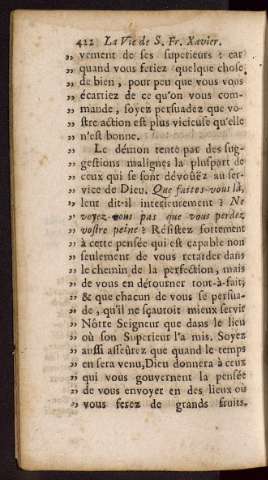 422 La Vie de S. Fr. Xavier.
„ vement de ses superieurs : car
„ quand vous feriez quelque chose
„ de bien, pour peu que vous vous
„ écartiez de ce qu'on vous com-
„ mande, soyez persuadez que vo-
„ stre action est plus vicieuse qu'elle
„ n'est bonne.
„ Le démon tente par des sug-
„ gestions malignes la pluspart de
„ ceux qui se sont dévoüëz au ser-
„ vice de Dieu. Que faites-vous là,
„ leur dit-il interieurement ? Ne
„ voyez-vous pas que vous perdez
„ vostre peine ? Résistez fortement
„ à cette pensée qui est capable non
„ seulement de vous retarder dans
„ le chemin de la perfection, mais
„ de vous en détourner tout-à-fait;
„ & que chacun de vous se persua-
„ de, qu'il ne sçauroit mieux servir
„ Nôtre Seigneur que dans le lieu
„ où son Superieur l'a mis. Soyez
„ aussi asseûrez que quand le temps
„ en sera venu, Dieu donnera à ceux
„ qui vous gouvernent la pensée
„ de vous envoyer en des lieux où
„ vous ferez de grands fruits.